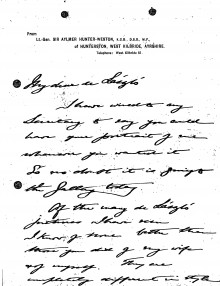 From
Lt.-Gen. SIR AYLMER HUNTER-WESTON, K.C.B., D.S.O., M.P.,
of HUNTERSTON, WEST KILBRIDE, AYRSHIRE.
Telephone: West Kilbride 10
My dear de László
I have wired to my
Secretary to say you could
have your portrait of me
whenever you want it
So no doubt it is going to
the Gallery today
Of the many de László
pictures I have seen
I know of none better than
those you did of my wife
& of myself. They are
different in style